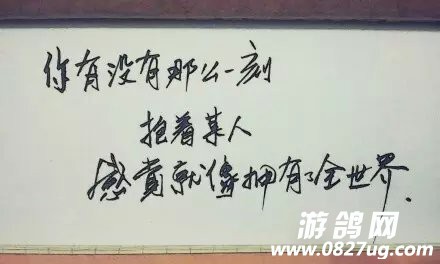 你有没有那么一刻
抱着某人
感赏就像拥有了全世界.
游鸽网
www.0827ug.com